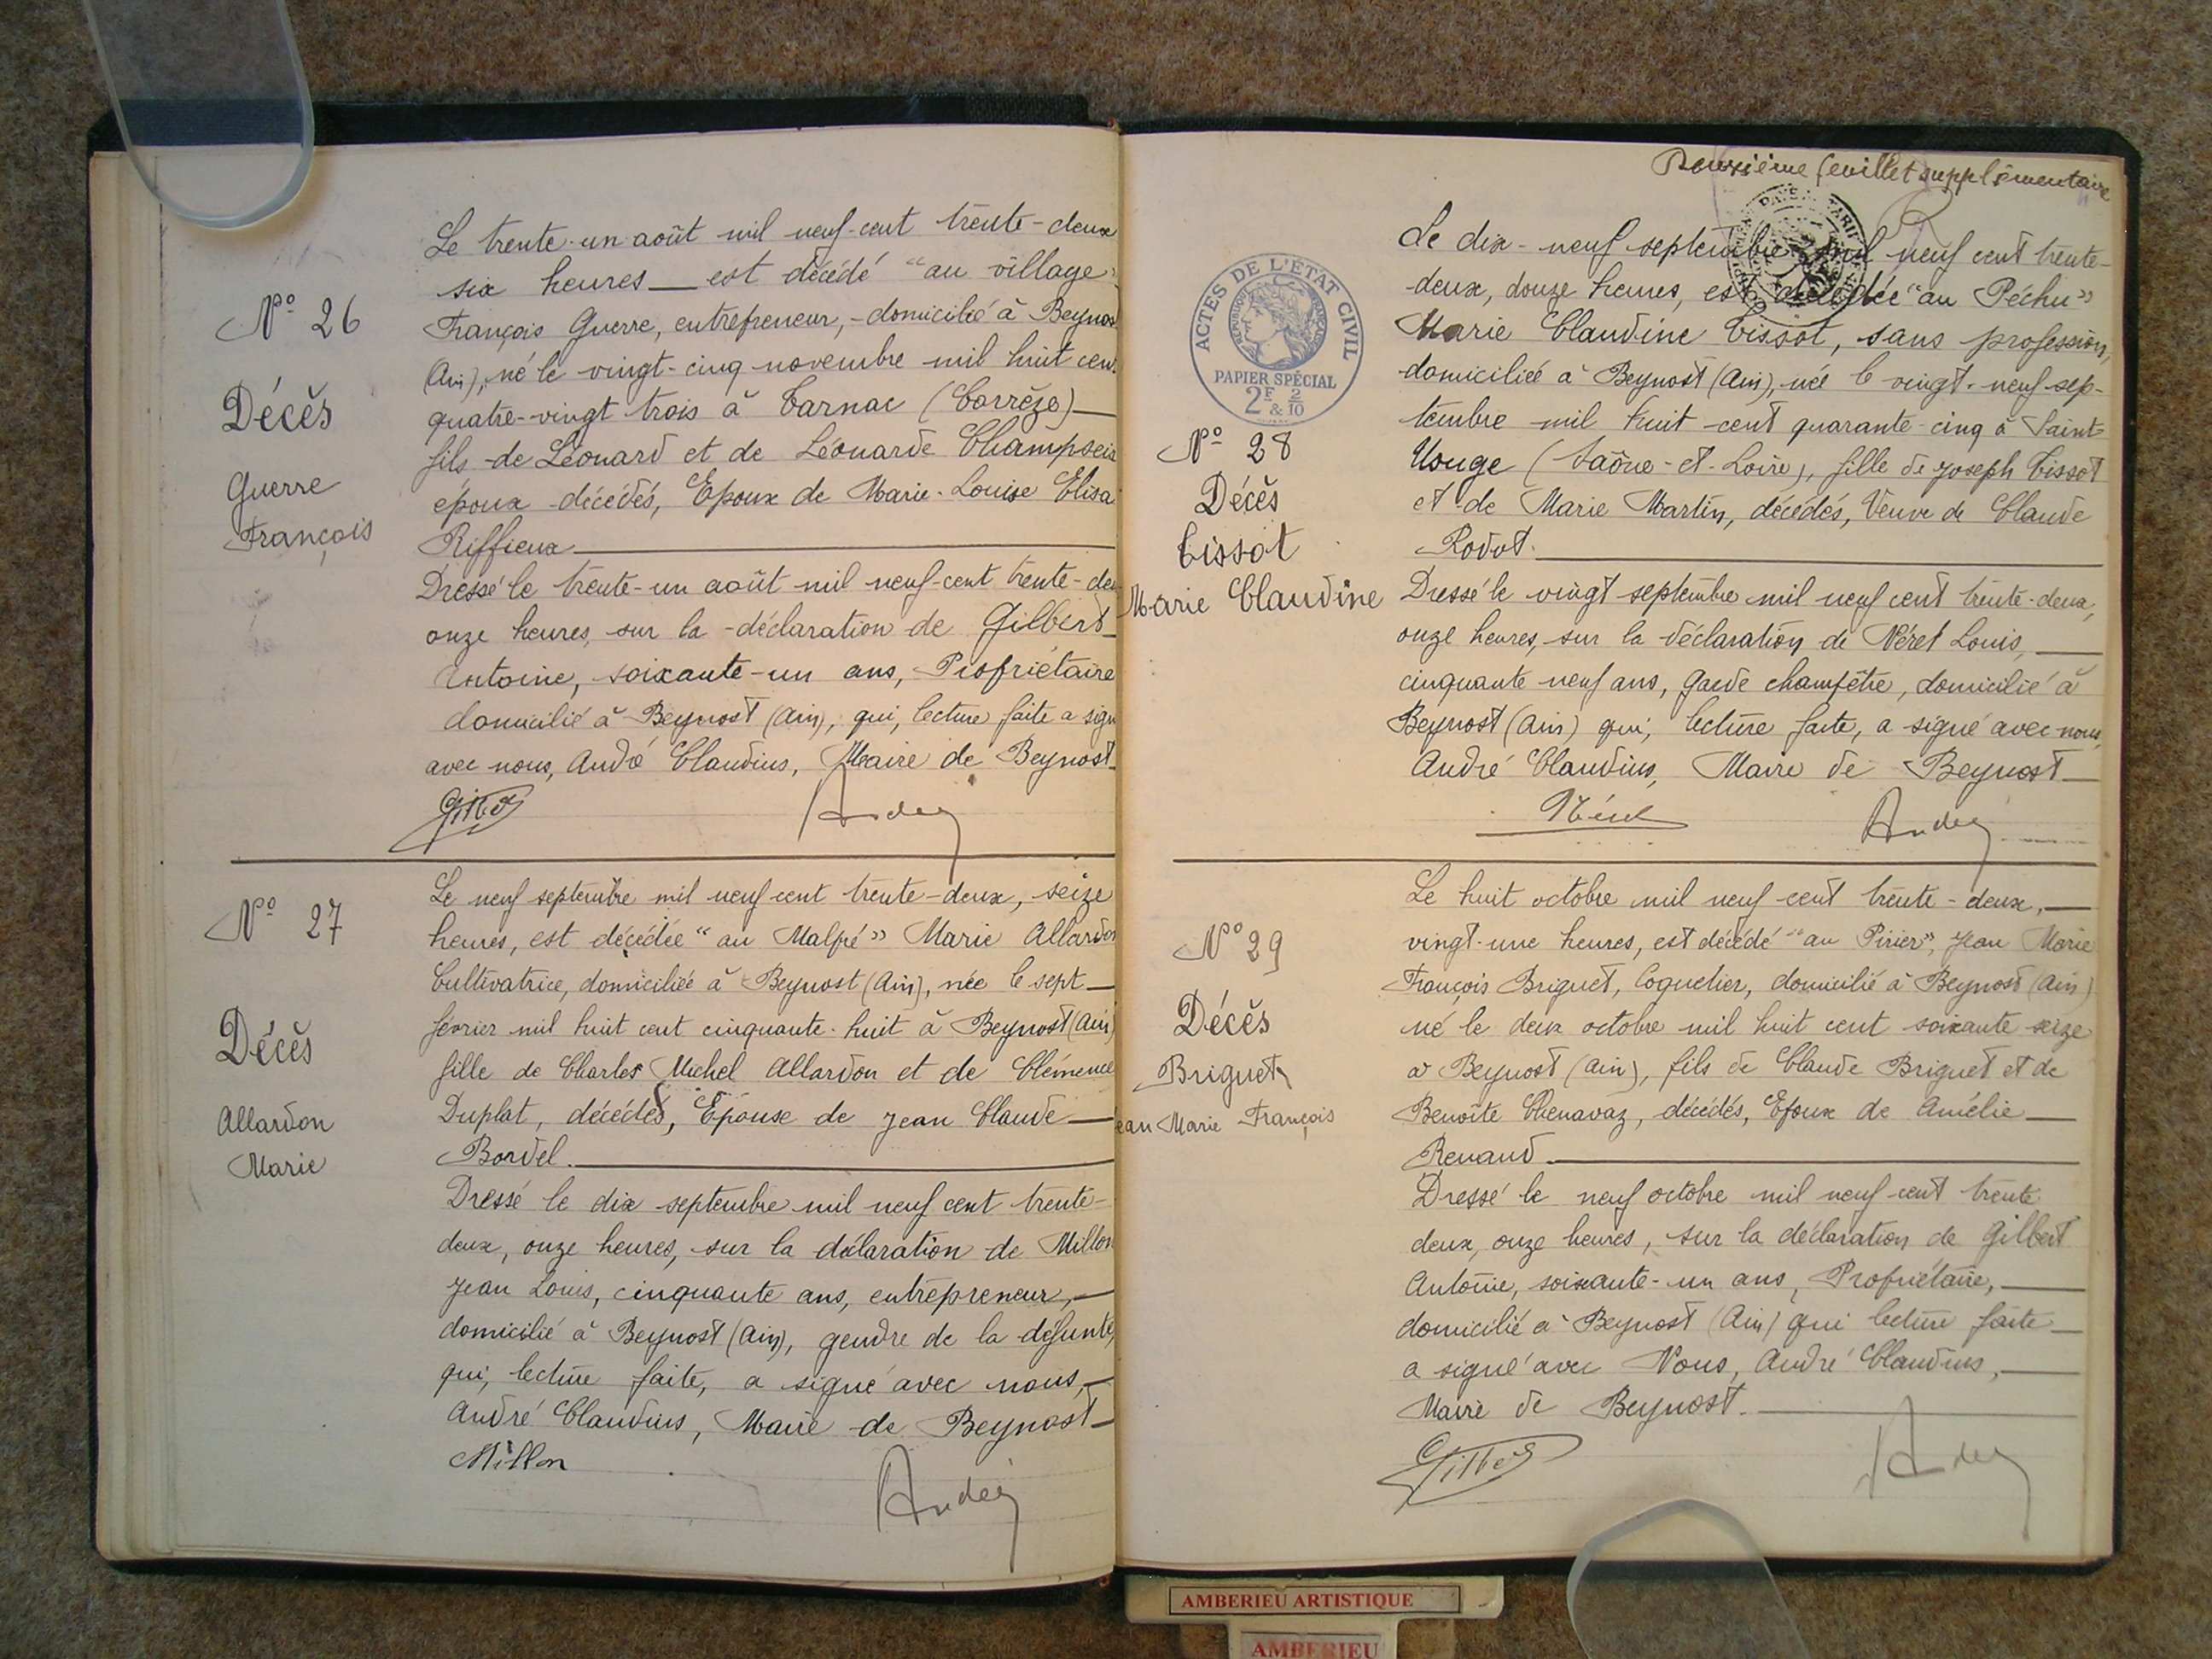 N° 26
Décès
Guerre
François
Le trente-un août mil neuf-cent trente-deux
six heures — est décédé "au village"
François Guerre, entrepreneur, domicilié à Beynos
(Ain), né le vingt-cinq novembre mil huit cen
quatre-vingt trois à Tarnac (Corrèze) —
fils de Léonard et de Léonarde Champseix
époux décédés, Epoux de Marie-Louise Elisa
Riffieux
Dressé le trente-un août mil neuf-cent trente-deu
onze heures, sur la déclaration de Gilbert
Antoine, soixante-un ans, Propriétaire
domicilié à Beynost (Ain), qui, lecture faite a sign
avec nous, André Claudius, Maire de Beynost
Gilbert
André
N° 27
Décès
Allardon
Marie
Le neuf septembre mil neuf cent trente-deux, seize
heures, est décédée "au Malpré" Marie Allardon
Cultivatrice, domiciliée à Beynost (Ain), née le sept —
février mil huit cent cinquante-huit à Beynost (Ain)
fille de Charles Michel Allardon et de Clémence
Duplat, décédés, Epouse de Jean Claude —
Bordel.
Dressé le dix septembre mil neuf cent trente-
deux, onze heures, sur la déclaration de Millon
Jean Louis, cinquante ans, entrepreneur, —
domicilié à Beynost (Ain), gendre de la défunte,
qui, lecture faite, a signé avec nous, —
André Claudius, Maire de Beynost —
Millon
André
Deuxième feuillet supplémentaire
ACTES DE L'ÉTAT CIVIL
RÉPUBLIQUE FRANÇAISE
PAPIER SPÉCIAL
2F & 2/10
N° 28
Décès
Tissot
Marie Claudine
Le dix-neuf septembre mil neuf cent trente-
deux, douze heures, est décédée "au Péchu"
Marie Claudine Tissot, sans profession,
domiciliée à Beynost (Ain), née le vingt-neuf sep-
tembre mil huit cent quarante-cinq à Saint
Usuge (Saône-et-Loire), fille de Joseph Tissot
et de Marie Martin, décédés, Veuve de Claude
Rodot.
Dressé le vingt septembre mil neuf cent trente-deux,
onze heures, sur la déclaration de Néret Louis, —
cinquante neuf ans, Garde champêtre, domicilié à
Beynost (Ain) qui, lecture faite, a signé avec nous,
André Claudius, Maire de Beynost —
Néret
André
N° 29
Décès
Briguet
ean Marie François
Le huit octobre mil neuf cent trente-deux, —
vingt-une heures, est décédé "au Pirier", Jean Marie
François Briguet, Coquetier, domicilié à Beynost (Ain)
né le deux octobre mil huit cent soixante seize
à Beynost (Ain), fils de Claude Briguet et de
Benoîte Chenavaz, décédés, Epoux de Amélie —
Renaud.
Dressé le neuf octobre mil neuf cent trente
deux, onze heures, sur la déclaration de Gilbert
Antoine, soixante-un ans, Propriétaire, —
domicilié à Beynost (Ain) qui lecture faite —
a signé avec Nous, André Claudius, —
Maire de Beynost.
Gilbert
André
AMBERIEU ARTISTIQUE
AMBERIEU